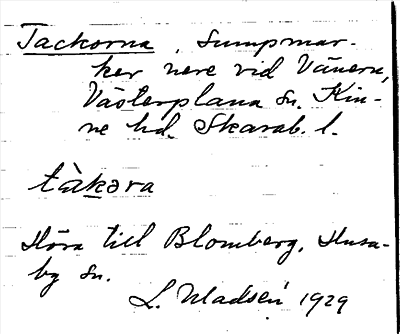 Tackorna, sumpmar-
ker nere vid Vänern,
Västerplana sn. Kin-
ne hd. Skarab. l.
tàkəra
Höra till Blomberg, Husa-
by sn.
L. Madsén 1929